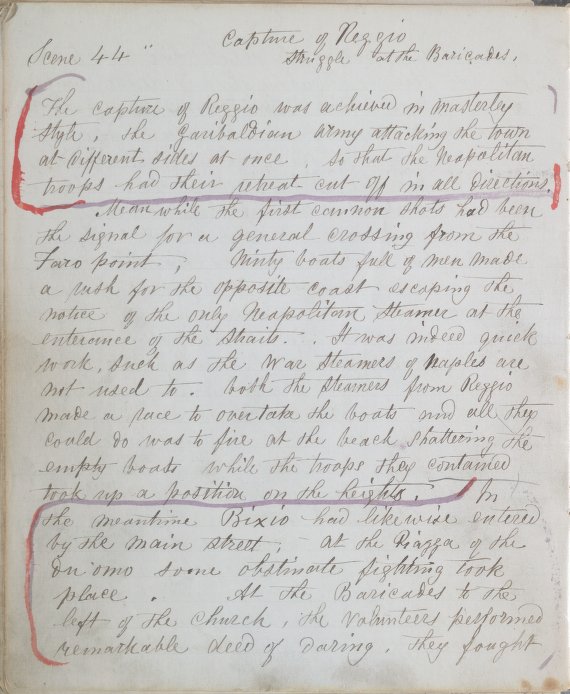 Capture of Reggio
Scene 44" Struggle at the Baricades.
The capture of Reggio was achieved in masterley
style, the Garibaldian army attacking the town
at different sides at once, so that the Neapolitan
troops had their retreat cut off in all directions.
Mean while the first cannon shots had been
the signal for a general crossing from the
Faro point, Ninty boats full of men made
a rush for the opposite coast escaping the
notice of the only Neapolitan steamer at the
enterance of the straits. It was indeed quick
work, such as the War steamers of Naples are
not used to. both the steamers from Reggio
made a race to overtake the boats and all they
could do was to fire at the beach shattering the
empty boats while the troops they contained
took up a position on the heights. In
the meantime Bixio had likewise entered
by the main street, - at the Piazza of the
du'omo some obstinate fighting took
place. At the Baricades to the
left of the church, the Volunteers performed
remarkable deed of daring. they fought